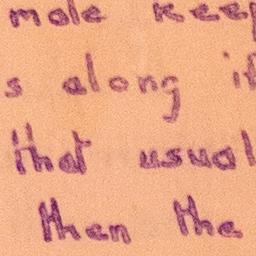 mole keep
s along if
that usual
then the